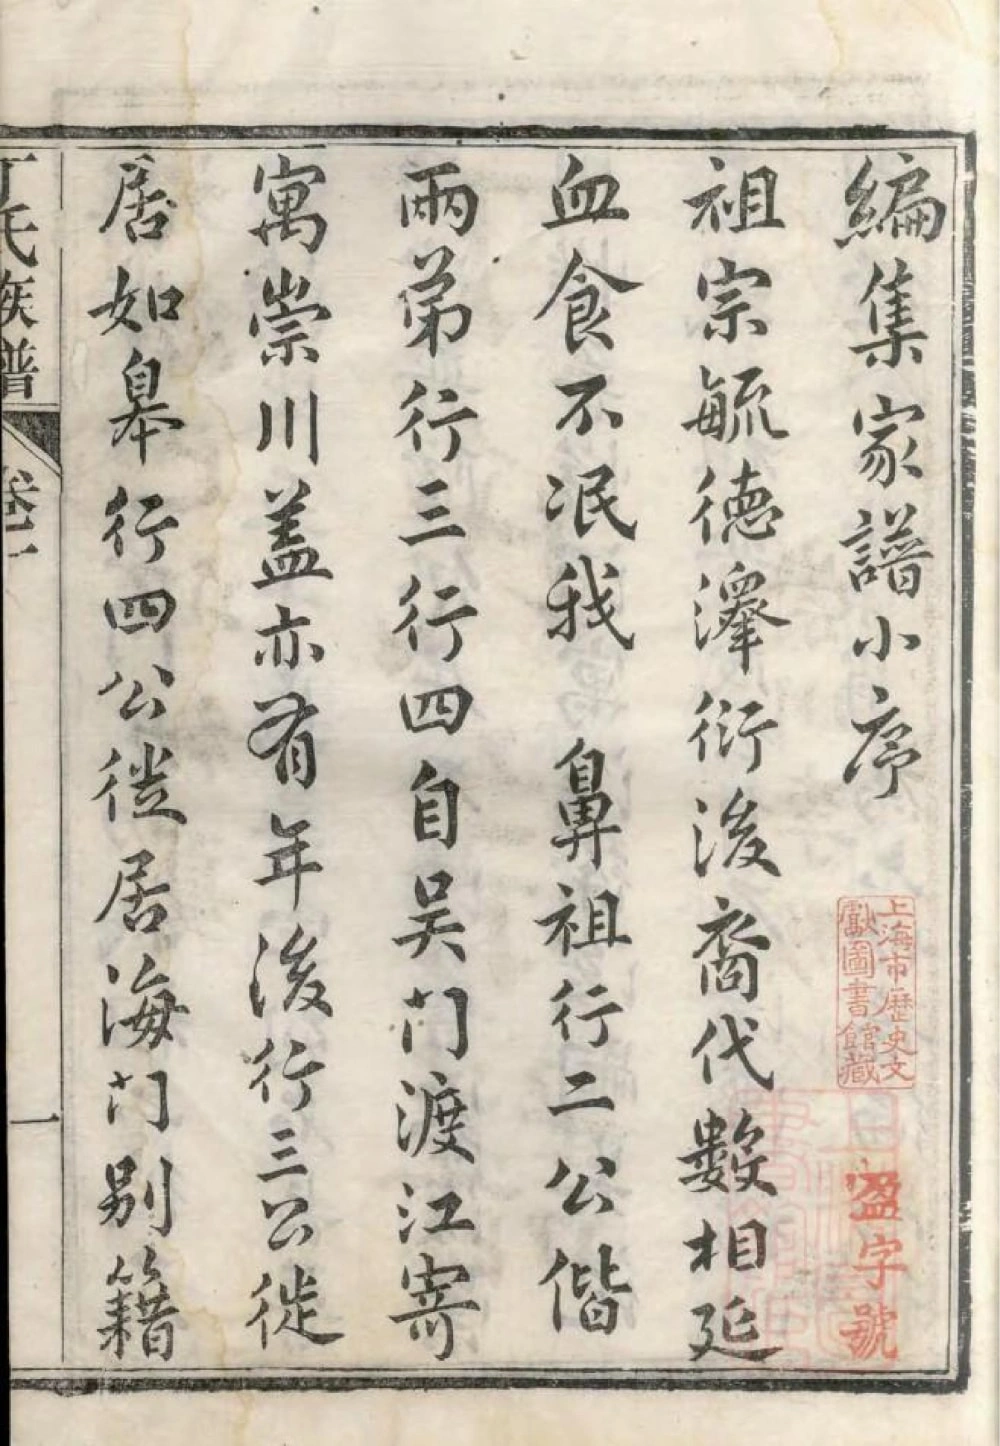 編集家譜小序
祖宗毓德澤衍後裔代數相延
血食不泯我 鼻祖行二公偕
兩弟行三行四自吴门渡江寄
寓崇川盖亦有年後行三公徙
居如皋行四公徙居海门别籍
丁氏族譜 卷一
一
上海市歷史文
獻圖書館藏
盈字號